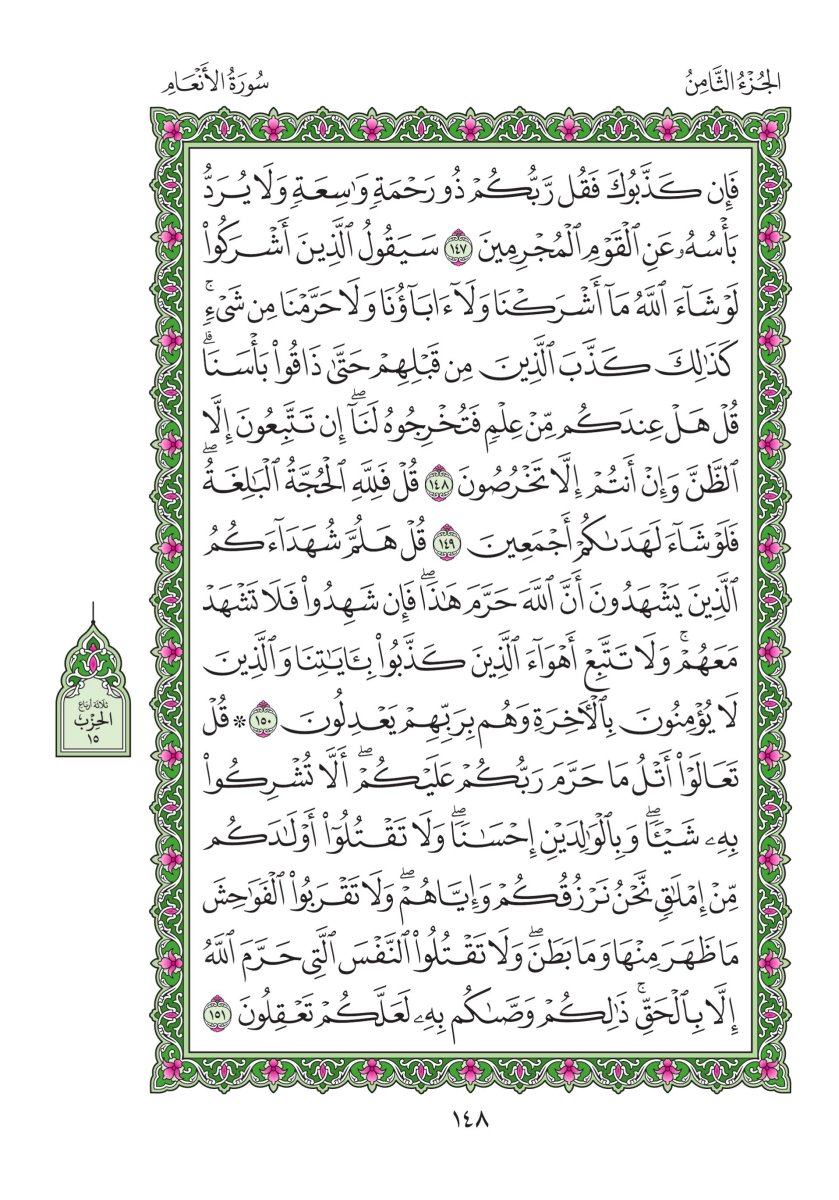 الجُزْءُ الثَّامِنُ
سُورَةُ الأَنْعَامِ
فَإِن كَذَّبُوكَ فَقُل رَّبُّكُمْ ذُو رَحْمَةٍ وَٰسِعَةٍ وَلَا يُرَدُّ
بَأْسُهُۥ عَنِ ٱلْقَوْمِ ٱلْمُجْرِمِينَ ١٤٧ سَيَقُولُ ٱلَّذِينَ أَشْرَكُوا۟
لَوْ شَآءَ ٱللَّهُ مَآ أَشْرَكْنَا وَلَآ ءَابَآؤُنَا وَلَا حَرَّمْنَا مِن شَىْءٍۚ
كَذَٰلِكَ كَذَّبَ ٱلَّذِينَ مِن قَبْلِهِمْ حَتَّىٰ ذَاقُوا۟ بَأْسَنَاۗ
قُلْ هَلْ عِندَكُم مِّنْ عِلْمٍ فَتُخْرِجُوهُ لَنَآۖ إِن تَتَّبِعُونَ إِلَّا
ٱلظَّنَّ وَإِنْ أَنتُمْ إِلَّا تَخْرُصُونَ ١٤٨ قُلْ فَلِلَّهِ ٱلْحُجَّةُ ٱلْبَٰلِغَةُۖ
فَلَوْ شَآءَ لَهَدَىٰكُمْ أَجْمَعِينَ ١٤٩ قُلْ هَلُمَّ شُهَدَآءَكُمُ
ٱلَّذِينَ يَشْهَدُونَ أَنَّ ٱللَّهَ حَرَّمَ هَٰذَاۖ فَإِن شَهِدُوا۟ فَلَا تَشْهَدْ
مَعَهُمْۚ وَلَا تَتَّبِعْ أَهْوَآءَ ٱلَّذِينَ كَذَّبُوا۟ بِـَٔايَٰتِنَا وَٱلَّذِينَ
لَا يُؤْمِنُونَ بِٱلْـَٔاخِرَةِ وَهُم بِرَبِّهِمْ يَعْدِلُونَ ١٥٠ * قُلْ
تَعَالَوْا۟ أَتْلُ مَا حَرَّمَ رَبُّكُمْ عَلَيْكُمْۖ أَلَّا تُشْرِكُوا۟
بِهِۦ شَيْـًٔاۖ وَبِٱلْوَٰلِدَيْنِ إِحْسَٰنًاۖ وَلَا تَقْتُلُوٓا۟ أَوْلَٰدَكُم
مِّنْ إِمْلَٰقٍ نَّحْنُ نَرْزُقُكُمْ وَإِيَّاهُمْۖ وَلَا تَقْرَبُوا۟ ٱلْفَوَٰحِشَ
مَا ظَهَرَ مِنْهَا وَمَا بَطَنَۖ وَلَا تَقْتُلُوا۟ ٱلنَّفْسَ ٱلَّتِى حَرَّمَ ٱللَّهُ
إِلَّا بِٱلْحَقِّۚ ذَٰلِكُمْ وَصَّىٰكُم بِهِۦ لَعَلَّكُمْ تَعْقِلُونَ ١٥١
ثلاثة أرباع
الحِزْبُ
١٥
١٤٨